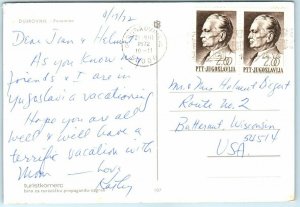 DUBROVNIK
8/17/72
Dear Joan & Helmut
As you know my
friends & I are in
Yugoslavia vacationing
Hope you are all
well & will have a
terrific vacation with
Mom — Love
Kathy
turistkomerc
biro za turističku propagandu zagreb
1972
2.00
2.00
PTT·JUGOSLAVIJA
PTT·JUGOSLAVIJA
Mr. & Mrs Helmut
Route No. 2
Butternut, Wisconsin
54514
USA.